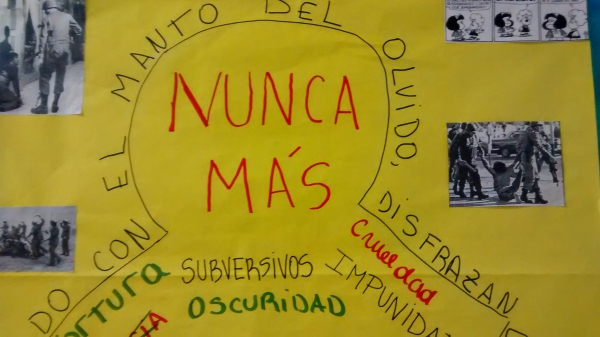 DO CON EL MANTO DEL OLVIDO, DISFRAZAN
NUNCA
MÁS
SUBVERSIVOS
crueldad
IMPUNIDA
OSCURIDAD